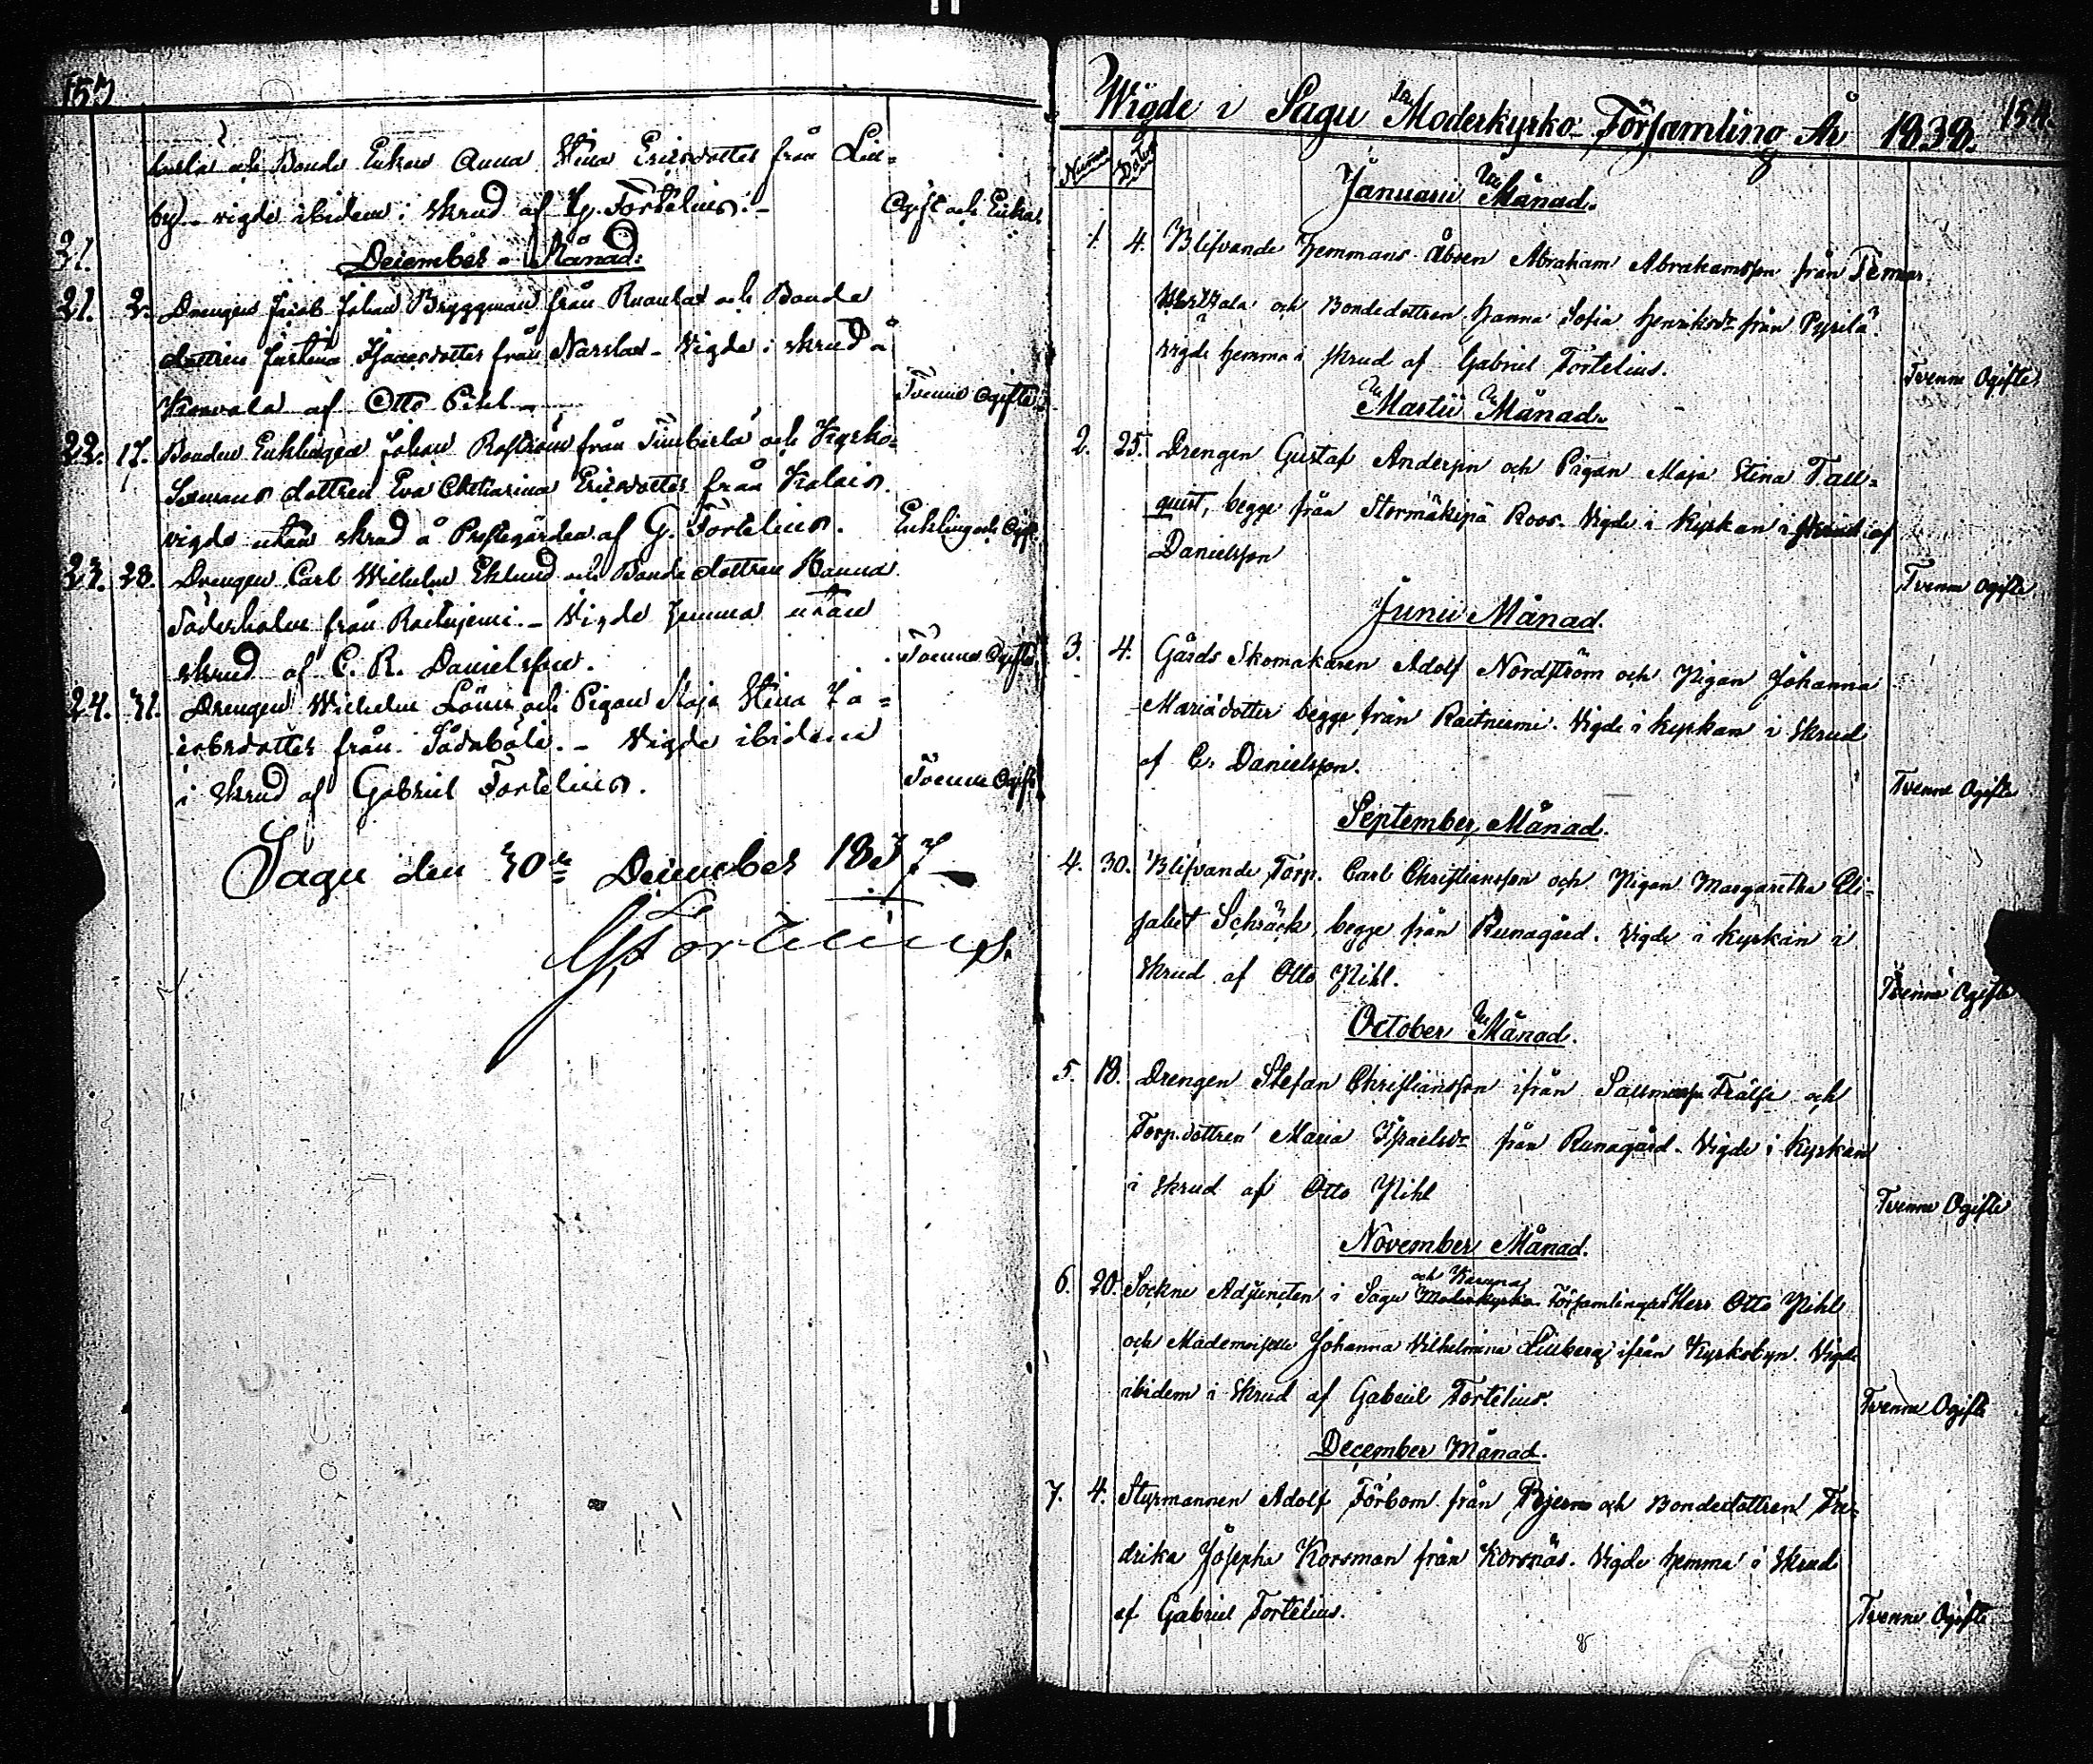 157
och Bonde Enkan Anna Stina Ericsdotter från Lill=
by - vigde ibidem i skrud af G. Fortelius. - Ogift och Enka
31.
December - Månad.
21. 2. Drengen Jacob Johan Bryggman från och Bonde
dottren Justina från - Vigde i skrud å
af Otto Pihl - Tvenne Ogifte
22. 17. Bonden Enklingen Johan från och Kyrko=
dottren Eva Catharina Ericsdotter från
vigde utan skrud å Prestegården af G. Fortelius. Enkling och Ogift
23. 28. Drengen Carl Wilhelm Eklund och Bonde dottren Hanna
Söderholm från Raitniemi. - Vigde hemma utan
skrud af C. R. Danielsson. Tvenne Ogifte
24. 31. Drengen Wilhelm och Pigan Maja Stina Ja=
cobsdotter från - Vigde ibidem
i skrud af Gabriel Fortelius. Tvenne Ogifte
Sagu den 30de December 1837
G. Fortelius.
Wigde i Sagu Moderkyrko-Församling År 1838. 158.
Numer Datum
Januarii Månad.
1. 4. Blifvande Hemmans Åboen Abraham Abrahamsson från
och Bondedottren Hanna Sofia Henriksdr från Pyrilä
vigde hemma i skrud af Gabriel Fortelius. Tvenne Ogifte
Martii Månad.
2. 25. Drengen Gustaf Andersson och Pigan Maja Stina Tall=
quist, begge från Stormäkipä Roos. Vigde i Kyrkan i skrud af
Danielsson Tvenne Ogifte
Junii Månad.
3. 4. Gårds Skomakaren Adolf Nordström och Pigan Johanna
Mariädotter begge från Raitniemi. Vigde i kyrkan i skrud
af C. Danielsson. Tvenne Ogifte
September Månad.
4. 30. Blifvande Torp. Carl Christiansson och Pigan Margaretha Eli=
sabet Schräck, begge från Runagård. Vigde i kyrkan i
skrud af Otto Pihl. Tvenne Ogifte
October Månad.
5. 18. Drengen Stefan Christiansson ifrån Frälse och
Torp.dottren Maria Israelsdr från Runagård. Vigde i Kyrkan
i skrud af Otto Pihl Tvenne Ogifte
November Månad.
och Karuna
6. 20. Sockne Adjuncten i Sagu Moderkyrko Församlingar Herr Otto Pihl
och Mademoiselle Johanna Vilhelmina Lilliberg ifrån Kyrkobyn. Vigde
ibidem i skrud af Gabriel Fortelius. Tvenne Ogifte
December Månad.
7. 4. Styrmannen Adolf Förbom från Bjerno och Bondedottren Fre=
drika Josepha Korsman från Korsnäs. Vigde hemma i skrud
af Gabriel Fortelius. Tvenne Ogifte